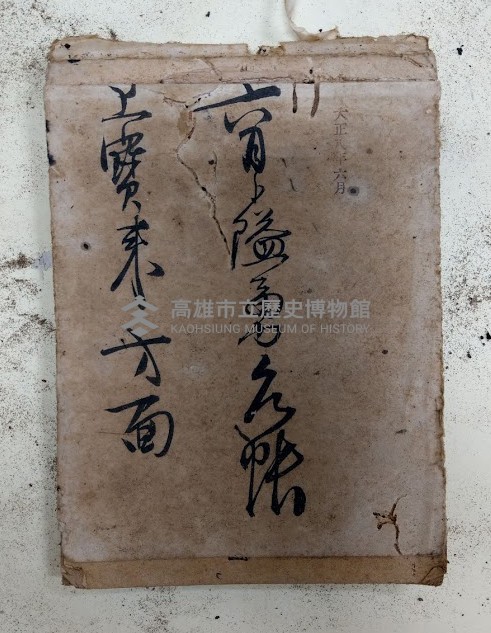 大正八年六月
六月隘勇名帳
上寶來方面
高雄市立歷史博物館
KAOHSIUNG MUSEUM OF HISTORY